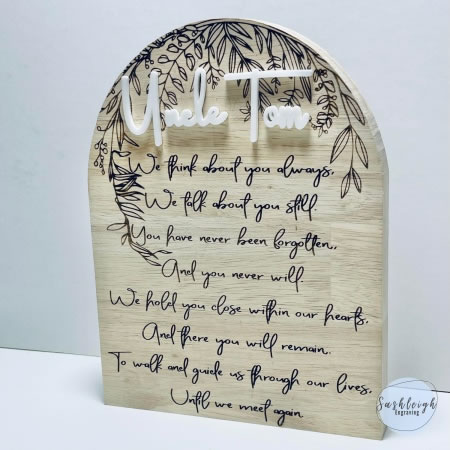 Uncle Tom
We think about you always,
We talk about you still.
You have never been forgotten,
And you never will.
We hold you close within our hearts,
And there you will remain.
To walk and guide us through our lives,
Until we meet again.
Sashleigh
Engraving